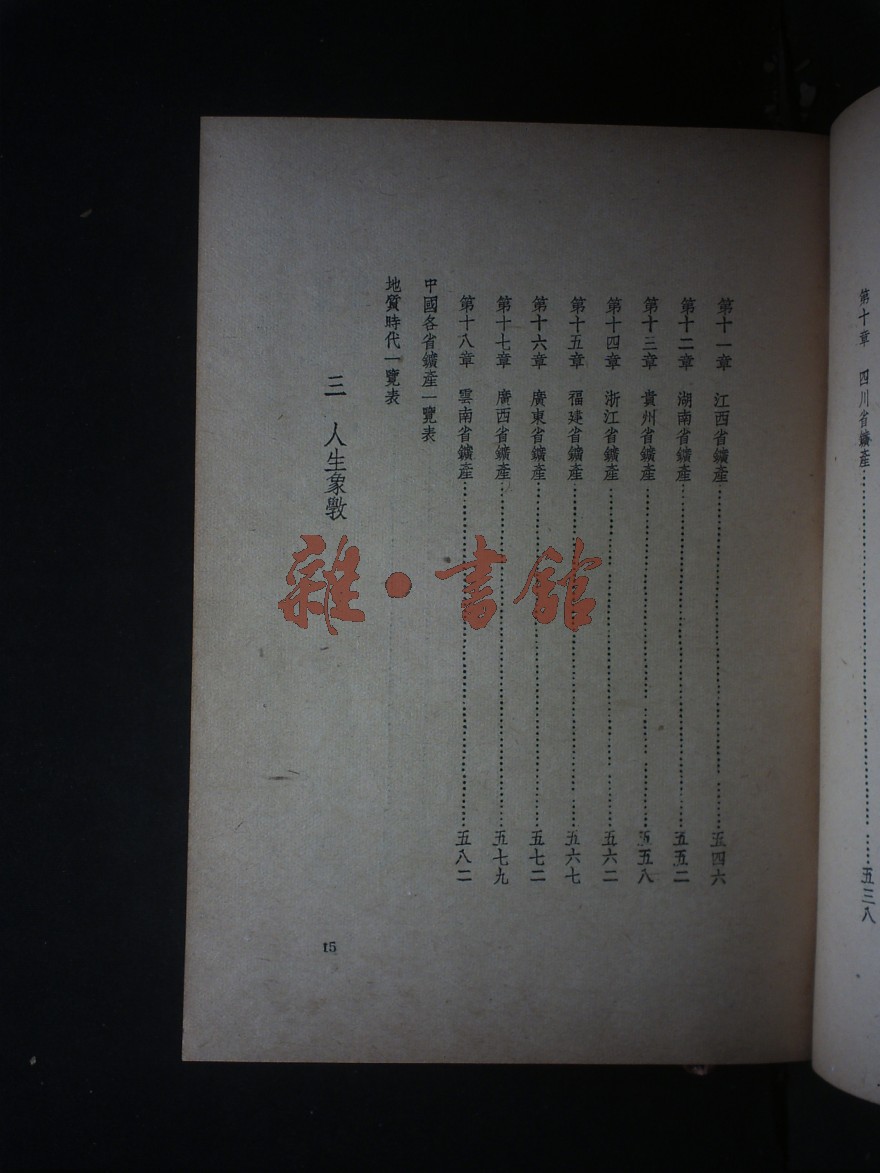 第十章　四川省鑛產……五三八
第十一章　江西省鑛產……五四六
第十二章　湖南省鑛產……五五二
第十三章　貴州省鑛產……五五八
第十四章　浙江省鑛產……五六二
第十五章　福建省鑛產……五六七
第十六章　廣東省鑛產……五七二
第十七章　廣西省鑛產……五七九
第十八章　雲南省鑛產……五八二
中國各省鑛產一覽表
地質時代一覽表
三　人生象斆
15
雜·書館